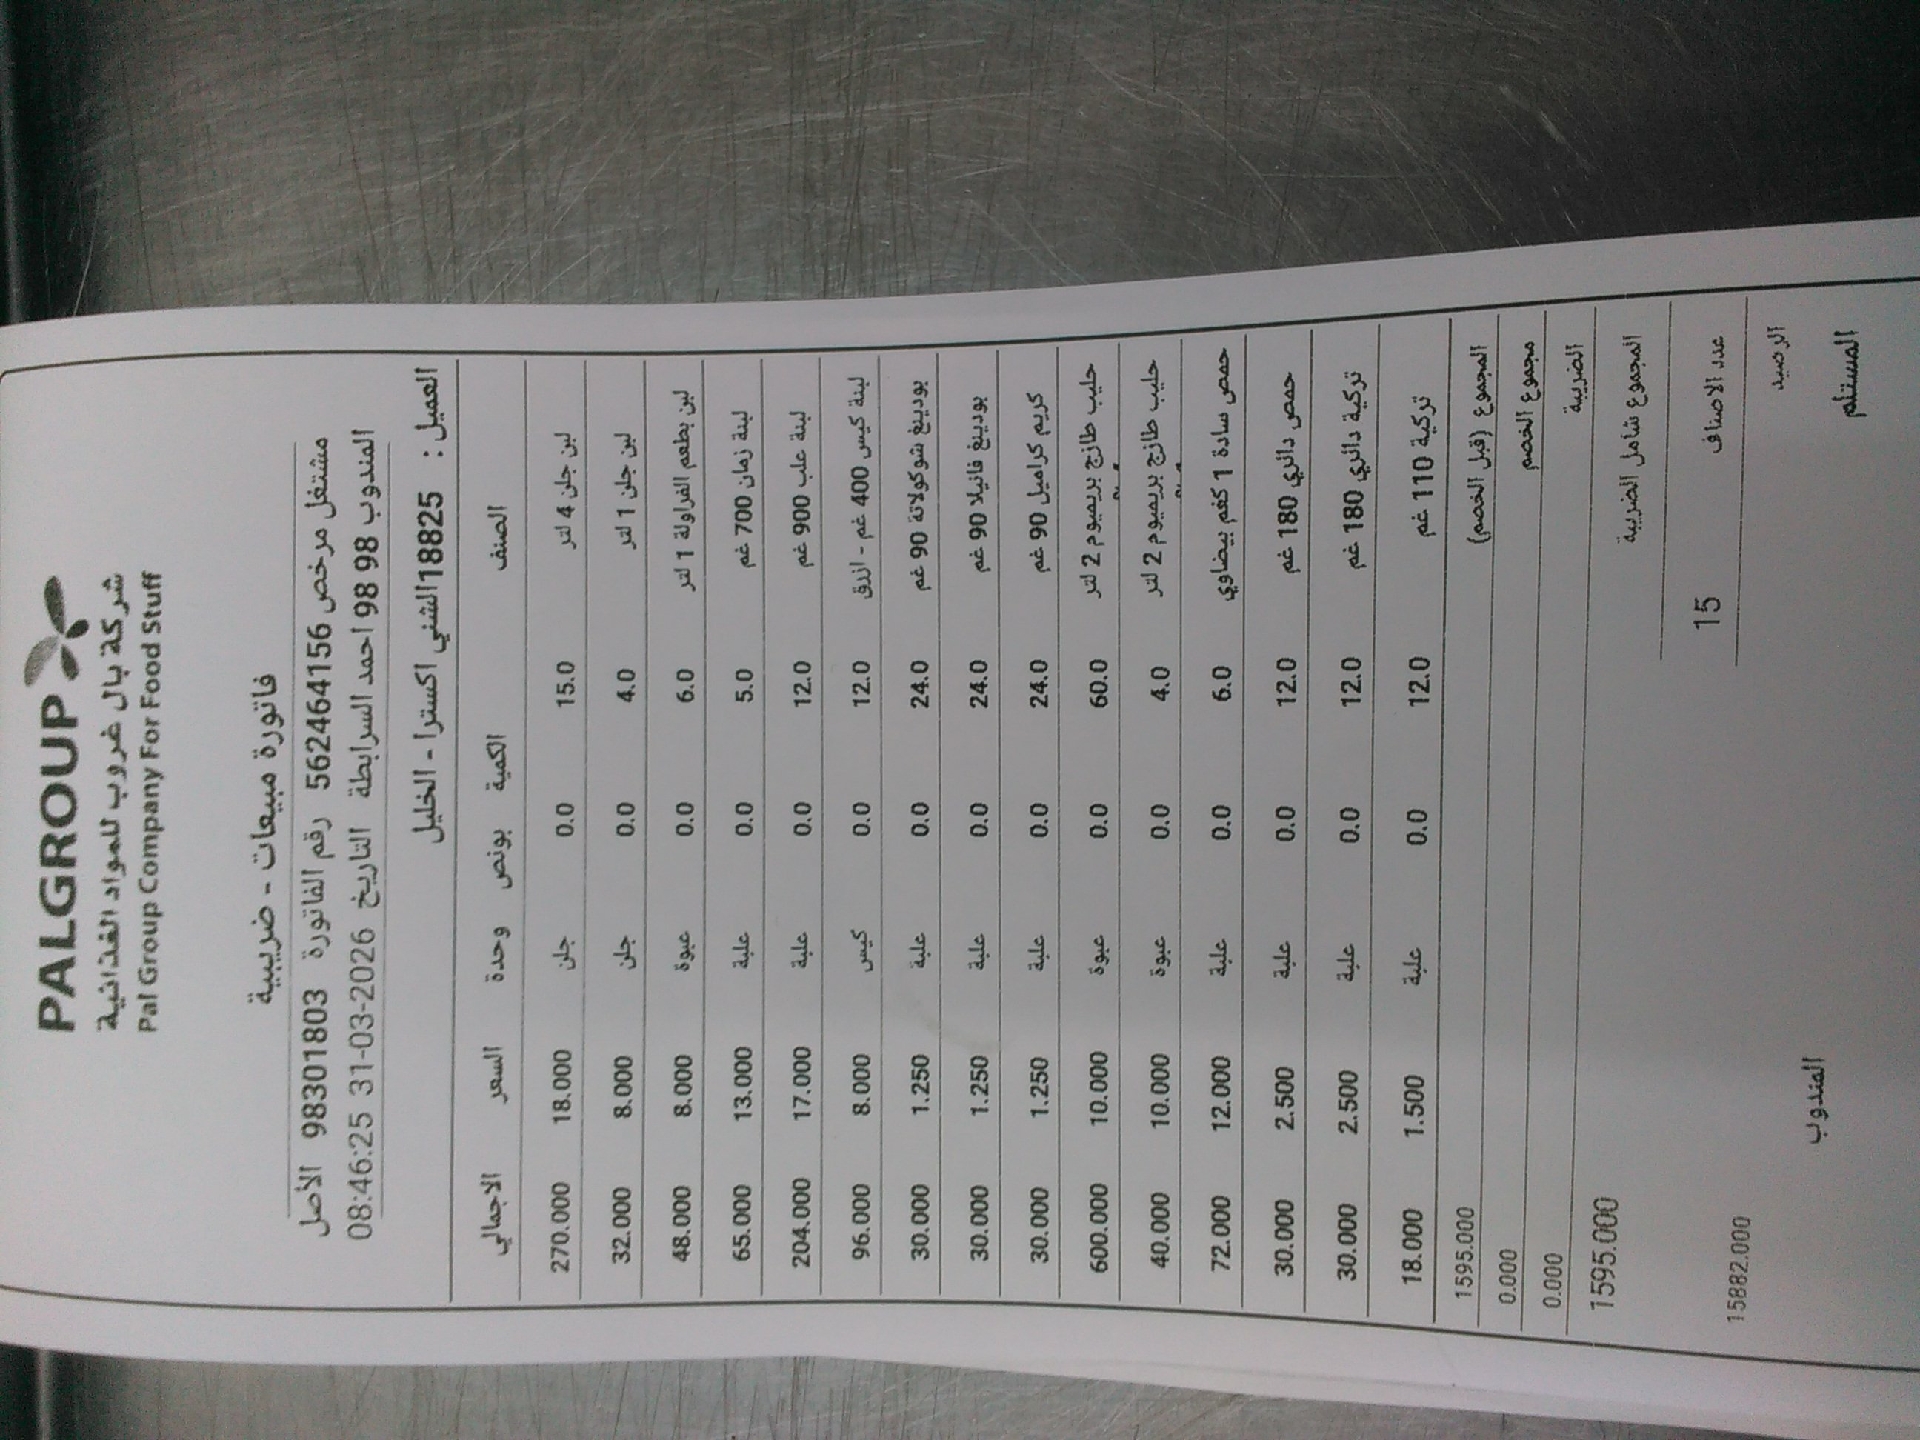 PALGROUP
شركة بال غروب للمواد الغذائية
Pal Group Company For Food Stuff
فاتورة مبيعات - ضريبية
مشتغل مرخص 562464156 رقم الفاتورة 98301803 الأصل
المندوب 98 98 احمد السرابطة التاريخ 2026-03-31 08:46:25
العميل : 18825الشني اكسترا - الخليل
الصنف الكمية بونص وحدة السعر الاجمالي
لبن جلن 4 لتر 15.0 0.0 جلن 18.000 270.000
لبن جلن 1 لتر 4.0 0.0 جلن 8.000 32.000
لبن بطعم الفراولة 1 لتر 6.0 0.0 عبوة 8.000 48.000
لبنة زمان 700 غم 5.0 0.0 علبة 13.000 65.000
لبنة علب 900 غم 12.0 0.0 علبة 17.000 204.000
لبنة كيس 400 غم - ازرق 12.0 0.0 كيس 8.000 96.000
بودينغ شوكولاتة 90 غم 24.0 0.0 علبة 1.250 30.000
بودينغ فانيلا 90 غم 24.0 0.0 علبة 1.250 30.000
كريم كراميل 90 غم 24.0 0.0 علبة 1.250 30.000
حليب طازج بريميوم 2 لتر 60.0 0.0 عبوة 10.000 600.000
حليب طازج بريميوم 2 لتر 4.0 0.0 عبوة 10.000 40.000
حمص سادة 1 كغم بيضاوي 6.0 0.0 علبة 12.000 72.000
حمص دائري 180 غم 12.0 0.0 علبة 2.500 30.000
تركية دائري 180 غم 12.0 0.0 علبة 2.500 30.000
تركية 110 غم 12.0 0.0 علبة 1.500 18.000
المجموع (قبل الخصم) 1595.000
مجموع الخصم 0.000
الضريبة 0.000
المجموع شامل الضريبة 1595.000
عدد الاصناف 15
الرصيد 15882.000
المستلم المندوب